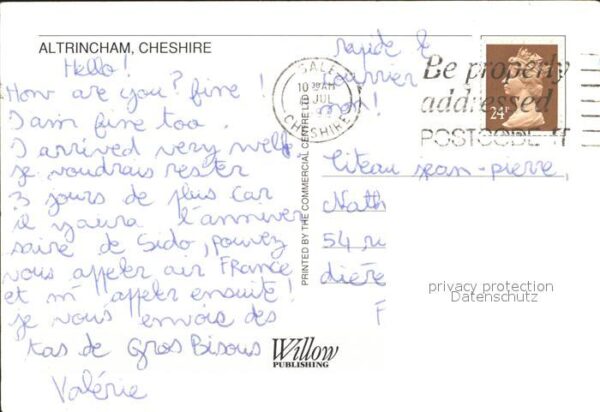 ALTRINCHAM, CHESHIRE
Hello!
How are you? fine!
I am fine too
I arrived very well
je voudrais rester
3 jours de plus car
il y aura l'anniver
saire de Sido, pouvez
vous appeler air France
et m'appeler ensuite!
je vous envois des
tas de Gros Bisous
Valérie
rapide le
courrier
non!
SALE
10 JUL
CHESHIRE
Be properly
addressed
POSTCODE IT
24P
PRINTED BY THE COMMERCIAL CENTRE LTD
Liteau jean-pierre,
Nath
54 ru
dière
F
privacy protection
Datenschutz
Willow
PUBLISHING